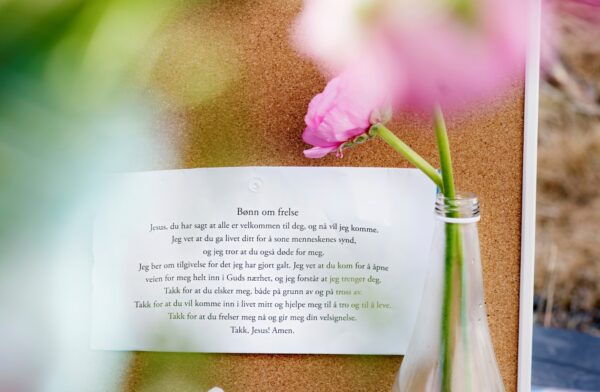 Bønn om frelse
Jesus, du har sagt at alle er velkommen til deg, og nå vil jeg komme.
Jeg vet at du ga livet ditt for å sone menneskenes synd,
og jeg tror at du også døde for meg.
Jeg ber om tilgivelse for det jeg har gjort galt. Jeg vet at du kom for å åpne
veien for meg helt inn i Guds nærhet, og jeg forstår at jeg trenger deg.
Takk for at du elsker meg, både på grunn av og på tross av.
Takk for at du vil komme inn i livet mitt og hjelpe meg til å tro og til å leve.
Takk for at du frelser meg nå og gir meg din velsignelse.
Takk, Jesus! Amen.